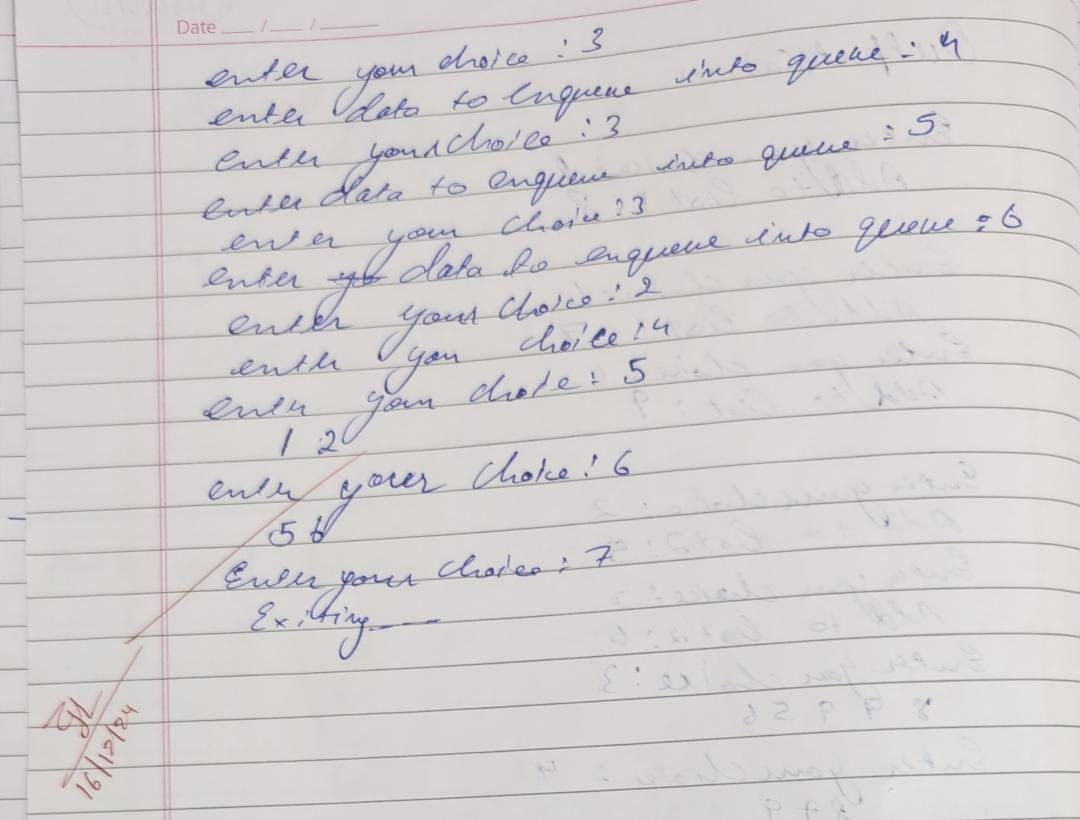 Date __ / __ / ____
enter your choice : 3
enter data to enqueue into queue : 4
enter your choice : 3
enter data to enqueue into queue : 5
enter your choice : 3
enter data to enqueue into queue : 6
enter your choice : 2
enter you choice : 4
enter your choice : 5
1 2
enter your choice : 6
5 6
Enter your choice : 7
Exiting
16/12/24